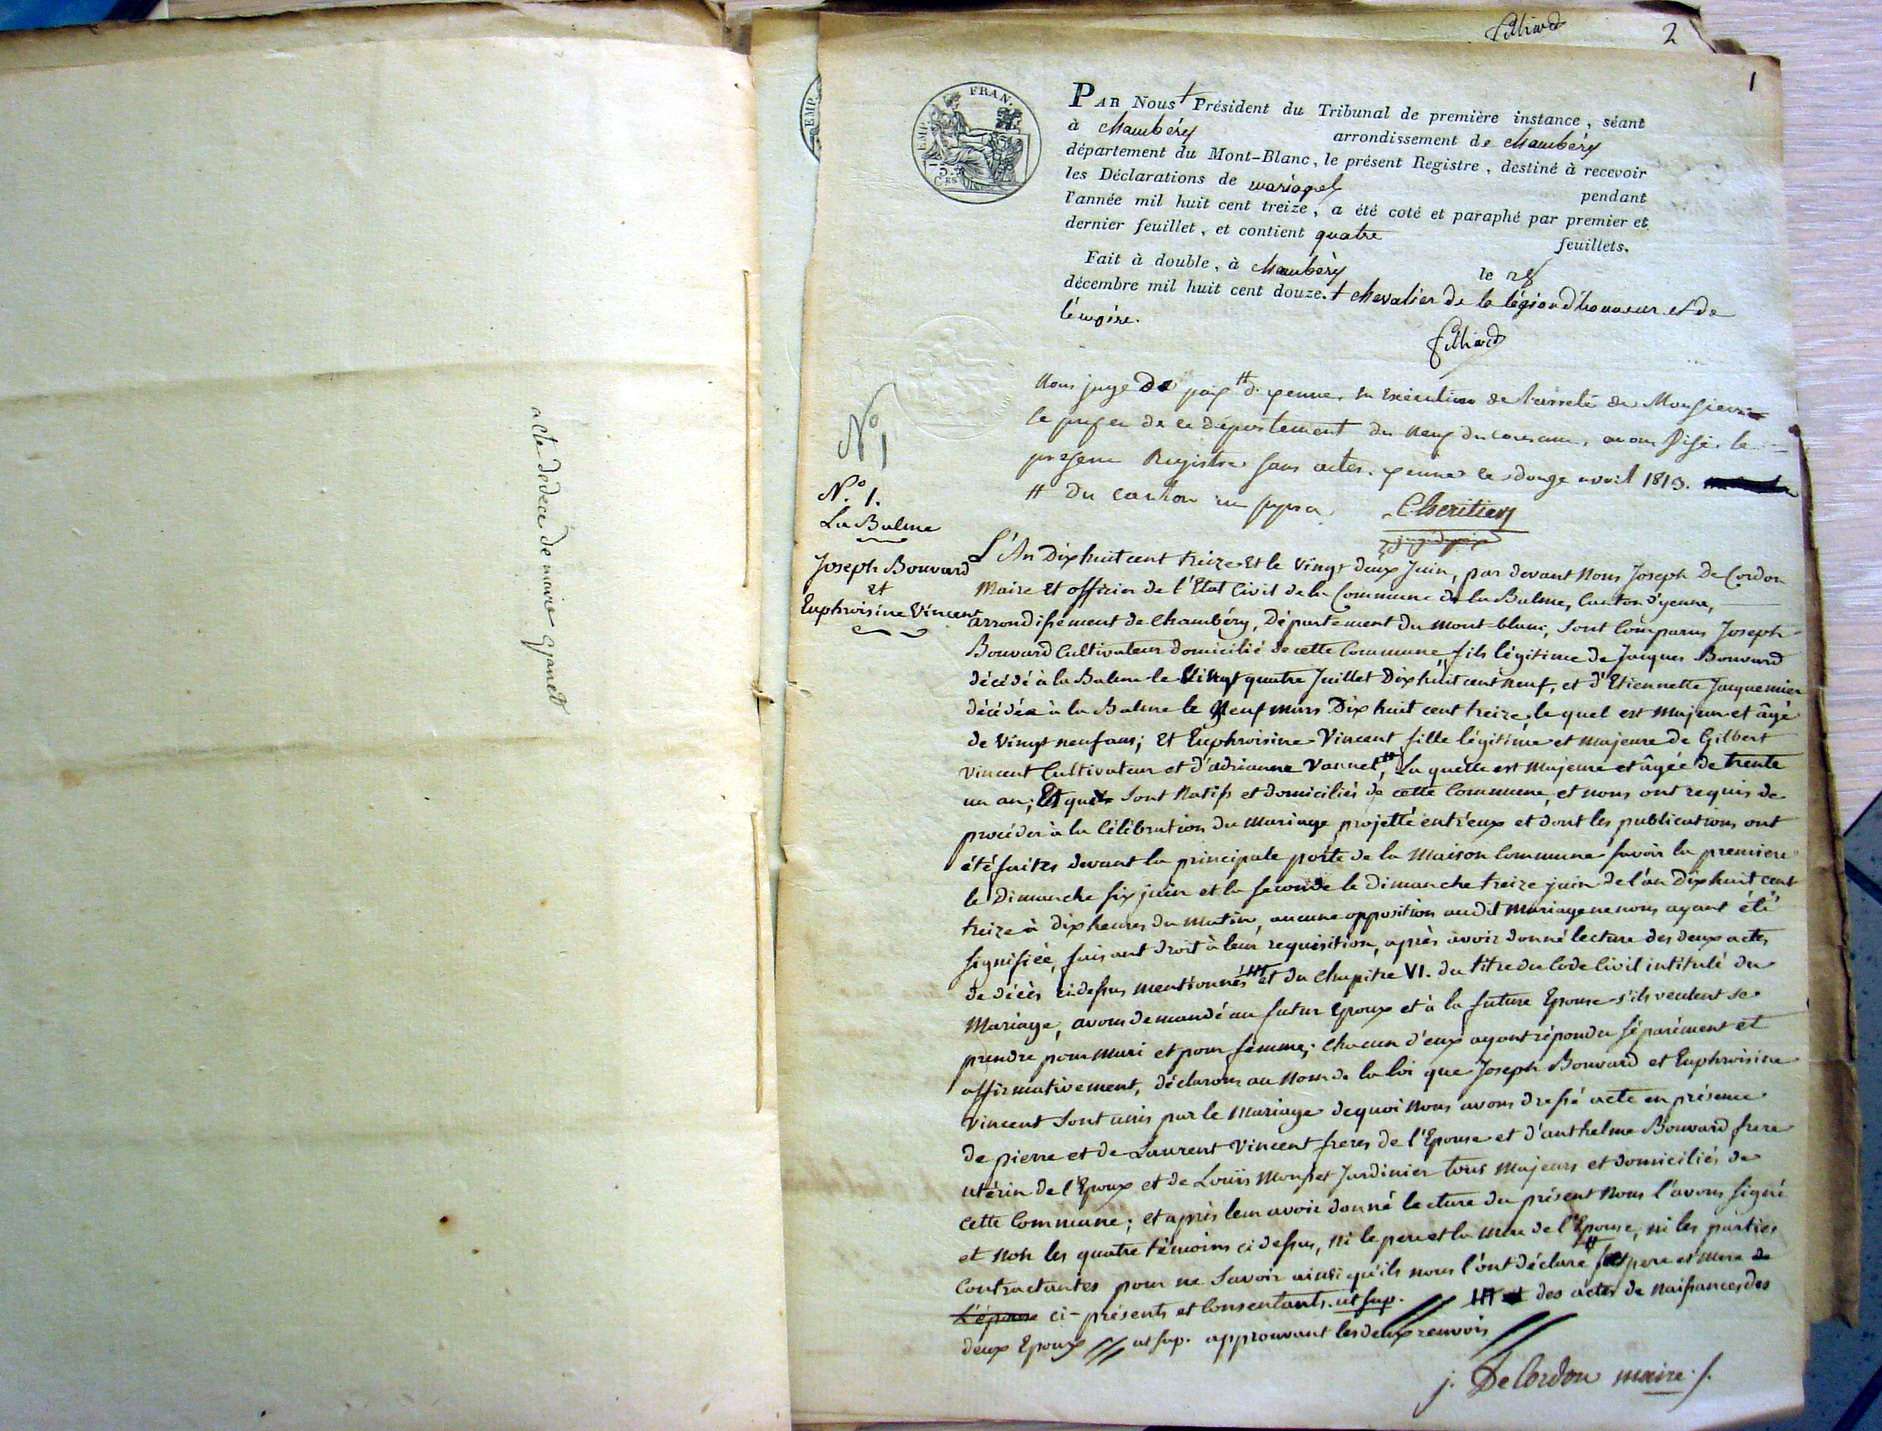 acte de décè de marie
filliard
2
1
EMP. FRAN.
PAR Nous + Président du Tribunal de première instance, séant
à Chambéry arrondissement de Chambéry
département du Mont-Blanc, le présent Registre, destiné à recevoir
les Déclarations de mariages pendant
l'année mil huit cent treize, a été coté et paraphé par premier et
dernier feuillet, et contient quatre feuillets.
Fait à double, à Chambéry le 28
décembre mil huit cent douze. + chevalier de la légion d'honneur et de
l'empire.
filliard
Nous juge De paix # d'yenne, en exécution de l'arreté de Monsieur
le prefet de ce département du neuf du courant, avons Visé le
present Registre sans actes. yenne le douze avril 1813.
# du canton
N.º 1
N.º 1.
La Balme
Joseph Bouvard
et
Euphroisine Vincent
L'An Dix huit cent treize et le vingt deux Juin, par devant Nous Joseph De Cordon
Maire et officier de l'Etat Civil de la Commune de la Balme, Canton d'yenne,
arrondissement de Chambéry, Département du mont-blanc, sont Comparus Joseph
Bouvard Cultivateur domicilié de cette Commune, fils légitime de Jacques Bouvard
décédé à la Balme le Vingt quatre Juillet Dix huit cent neuf, et d'Etiennette Jacquemier
décédée à la Balme le Neuf mars Dix huit cent treize, le quel est Majeur et âgé
de vingt neuf ans; Et Euphroisine Vincent fille légitime et majeure de Gilbert
Vincent Cultivateur et d'adrianne Vannet,# La quelle est Majeure et âgée de trente
un an; Et qui sont Natifs et domiciliés de cette Commune, et nous ont requis de
procéder à la Célébration du Mariage projetté entr'eux et dont les publications ont
été faites devant la principale porte de la Maison Commune savoir la premiere
le Dimanche six juin et la seconde le Dimanche treize juin de l'an Dix huit cent
treize à dix heures du Matin, aucune opposition au dit Mariage ne nous ayant été
signifiée, faisant droit à leur requisition, après avoir donné lecture des deux actes
de décès ci dessus mentionnés #et du Chapitre VI. du titre du Code Civil intitulé du
Mariage, avons demandé au futur Epoux et à la future Epouse s'ils veulent se
prendre pour Mari et pour femme; chacun d'eux ayant répondu séparément et
affirmativement, déclarons au Nom de la loi que Joseph Bouvard et Euphroisine
Vincent sont unis par le Mariage de quoi Nous avons dressé acte en présence
de pierre et de Laurent Vincent freres de l'Epouse et d'anthelme Bouvard frere
utérin de l'Epoux et de Louis Monset Jardinier tous Majeurs et domiciliés de
cette Commune; et après leur avoir donné lecture du présent Nous l'avons signé
et Non les quatre témoins ci dessus, Ni le pere et la mere de l'Epouse, ni les parties
Contractantes pour ne savoir ainsi qu'ils nous l'ont déclaré # ses pere et mere de
l'épouse ci-présents et Consentants. ut sup. des actes de naissances des
deux Epoux ut sup. approuvant les deux renvois
j. DeCordon maire